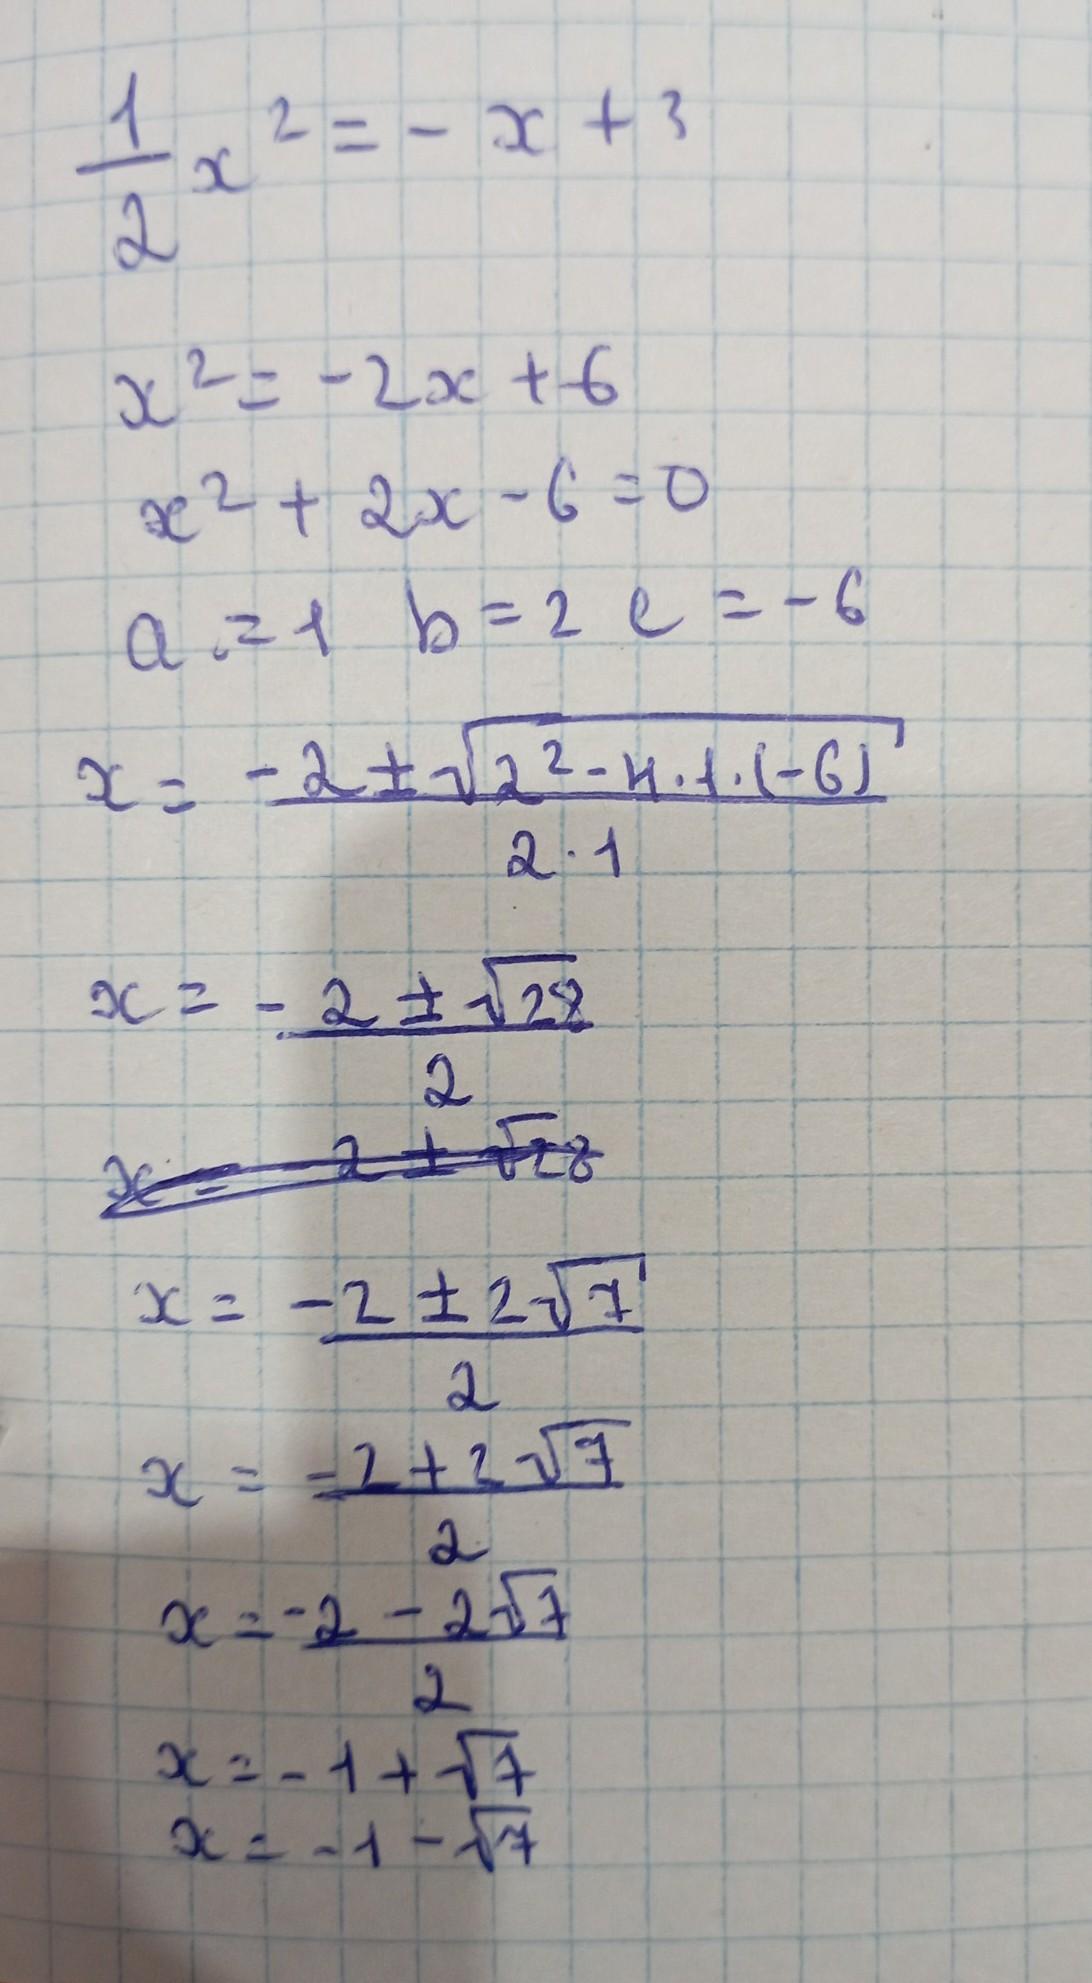 1/2 x² = - x + 3
x² = -2x + 6
x² + 2x - 6 = 0
a = 1 b = 2 c = -6
x = (-2 ± √(2² - 4·1·(-6))) / (2·1)
x = (-2 ± √28) / 2
x = -2 ± √28
x = (-2 ± 2√7) / 2
x = (-2 + 2√7) / 2
x = (-2 - 2√7) / 2
x = -1 + √7
x = -1 - √7